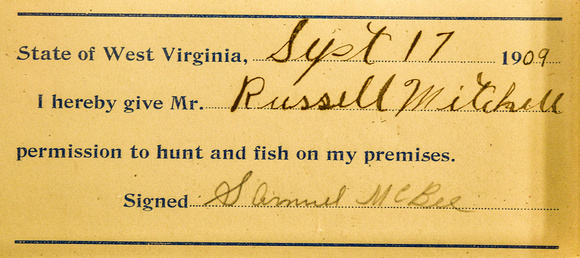 State of West Virginia, Sept 17 1909
I hereby give Mr. Russell Mitchell
permission to hunt and fish on my premises.
Signed Samuel McBee